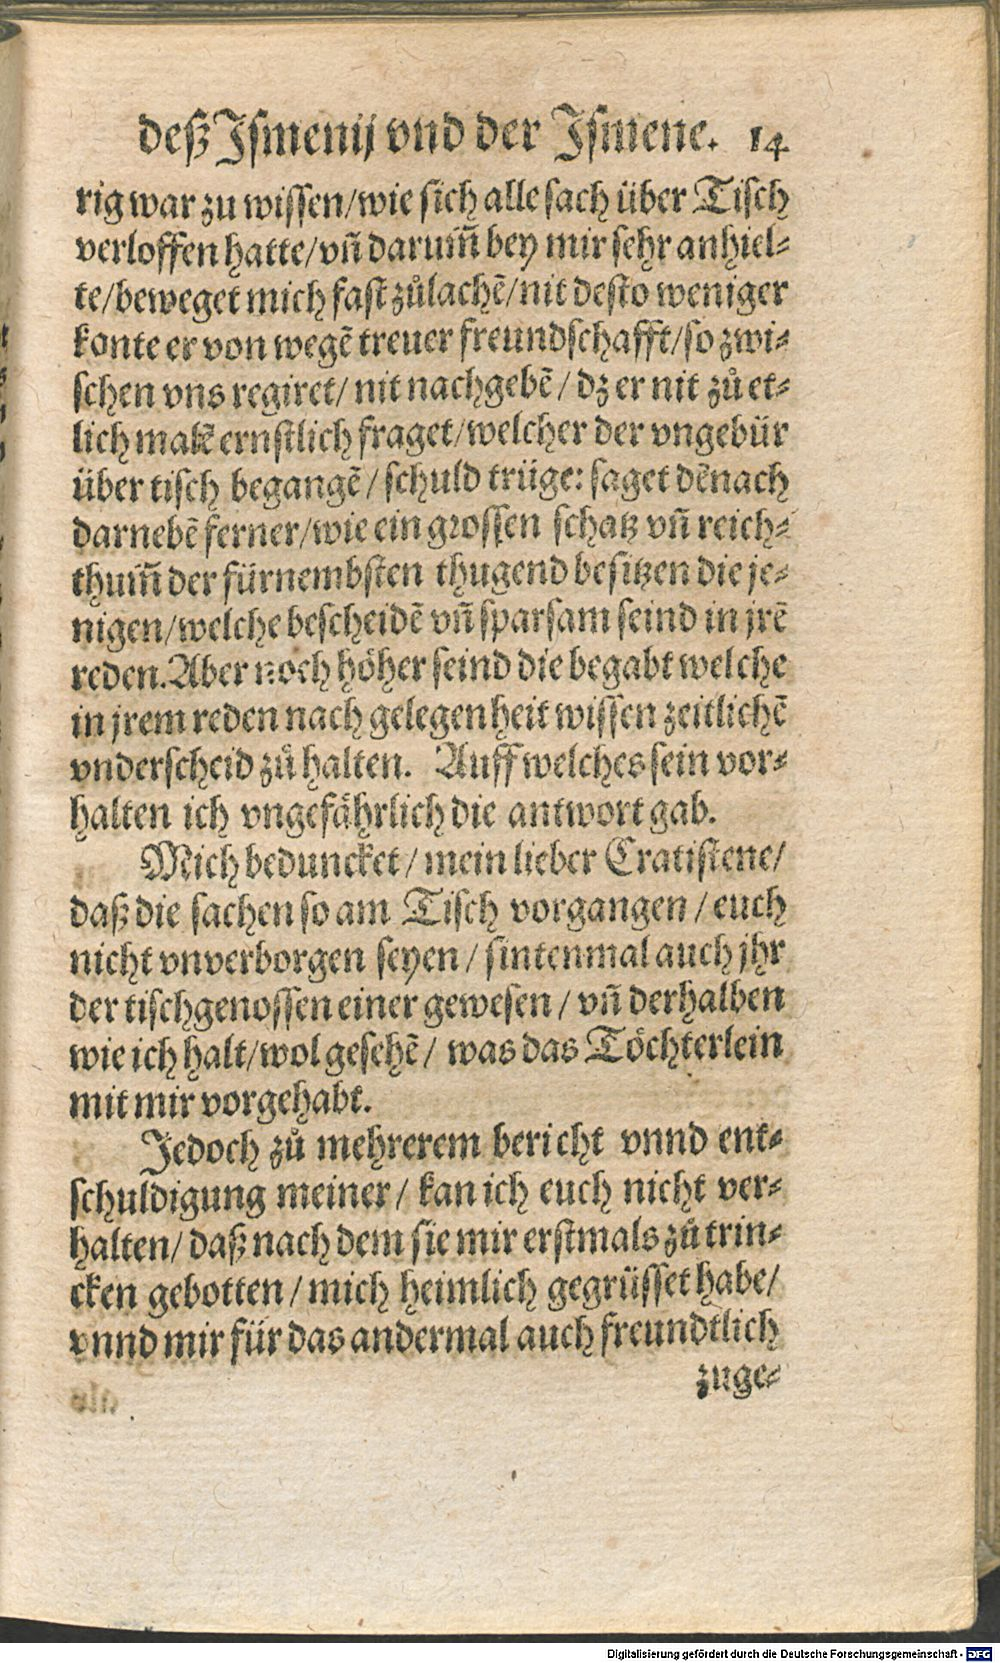 deß Ismenij vnd der Ismene. 14
rig war zu wissen/wie sich alle sach über Tisch
verloffen hatte/vñ darum̃ bey mir sehr anhiel⸗
te/beweget mich fast zůlachẽ/nit desto weniger
konte er von wegẽ treuer freundschafft/so zwi⸗
schen vns regiret/ nit nachgebẽ/ dz er nit zů et⸗
lich mahl ernstlich fraget/welcher der vngebür
über tisch begangẽ/ schuld trüge: saget dẽnach
darnebẽ ferner/wie ein grossen schatz vñ reich⸗
thum̃ der fürnembsten thugend besitzen die je⸗
nigen/welche bescheidẽ vñ sparsam seind in jrẽ
reden. Aber noch höher seind die begabt welche
in jrem reden nach gelegenheit wissen zeitlichẽ
vnderscheid zů halten. Auff welches sein vor⸗
halten ich vngefährlich die antwort gab.
Mich beduncket/ mein lieber Cratistene/
daß die sachen so am Tisch vorgangen/ euch
nicht vnverborgen seyen/ sintenmal auch jhr
der tischgenossen einer gewesen/ vñ derhalben
wie ich halt/wol gesehẽ/ was das Töchterlein
mit mir vorgehabt.
Jedoch zů mehrerem bericht vnnd ent⸗
schuldigung meiner/ kan ich euch nicht ver⸗
halten/ daß nach dem sie mir erstmals zů trin⸗
cken gebotten/ mich heimlich gegrüsset habe/
vnnd mir für das andermal auch freundtlich
zuge⸗
Digitalisierung gefördert durch die Deutsche Forschungsgemeinschaft - DFG